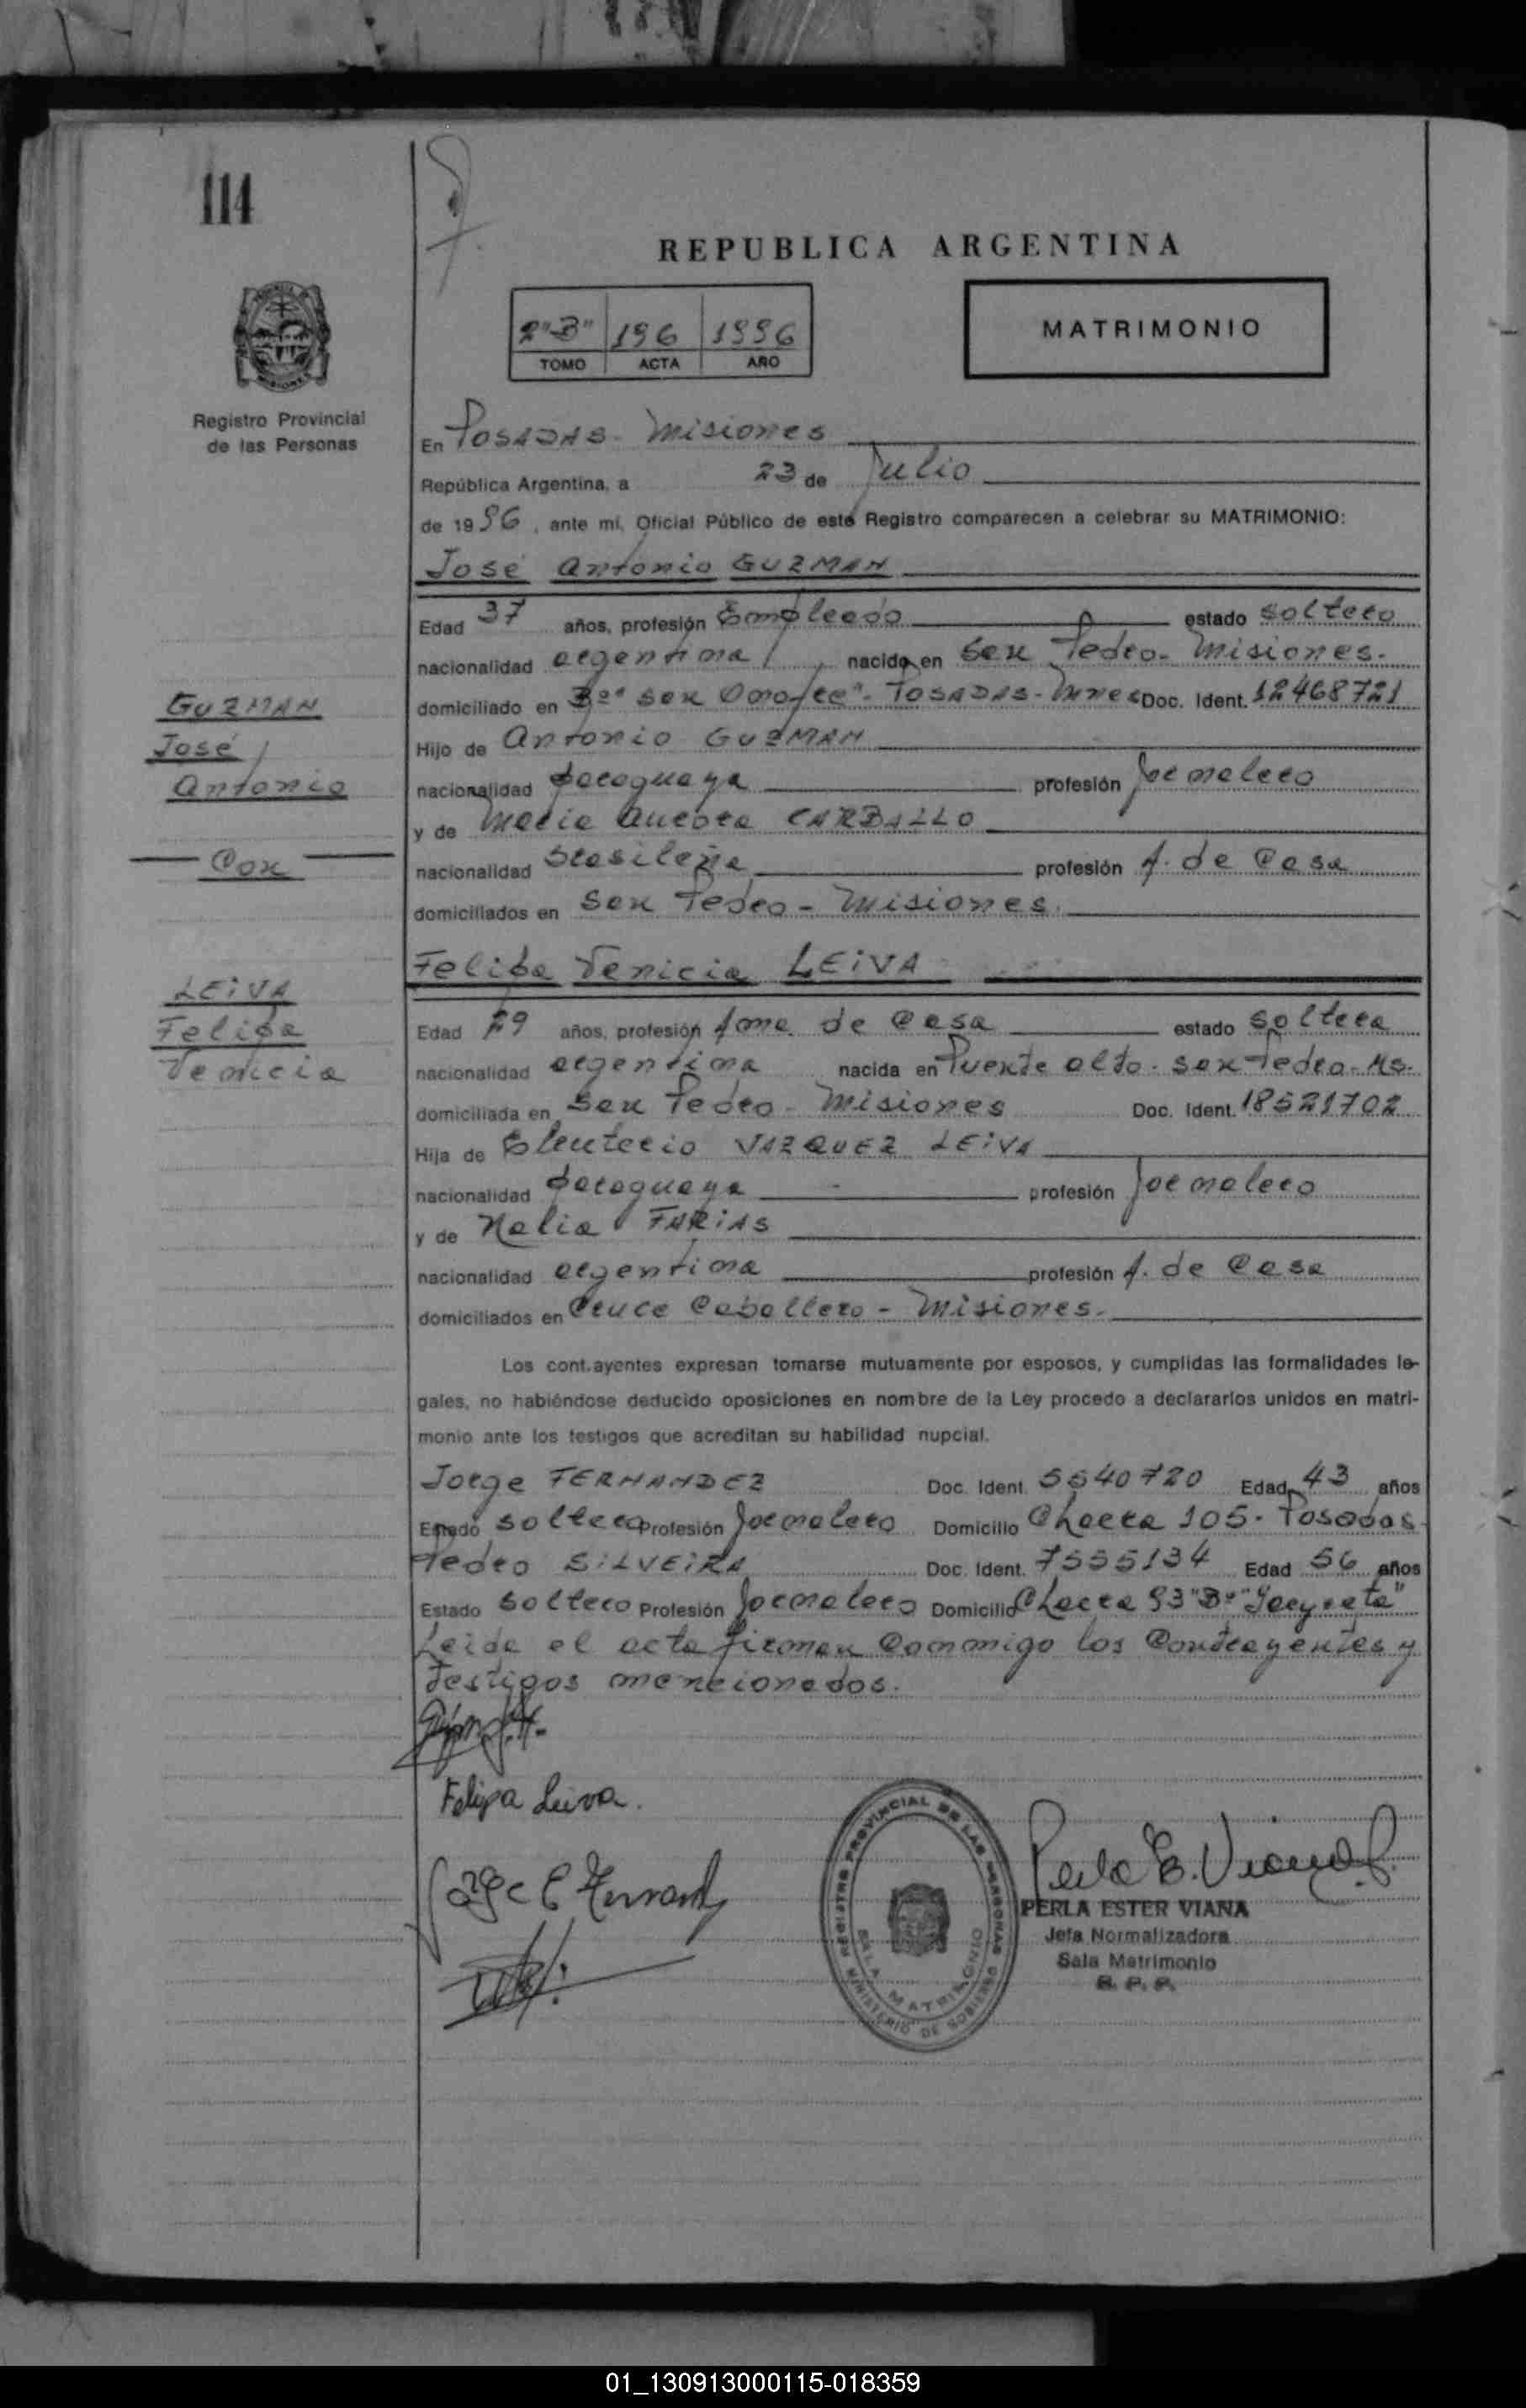 114
REPUBLICA ARGENTINA
2"B" 196 1996
TOMO ACTA AÑO
MATRIMONIO
Registro Provincial
de las Personas
En POSADAS - Misiones
República Argentina, a 23 de Julio
de 1996, ante mí, Oficial Público de este Registro comparecen a celebrar su MATRIMONIO:
José Antonio GUZMAN
Edad 37 años, profesión Empleado estado soltero
nacionalidad argentina nacido en San Pedro - Misiones.
domiciliado en Bº" San Onofre" - POSADAS - Mnes Doc. Ident. 12468721
GUZMAN
José
Antonio
Hijo de Antonio GUZMAN
nacionalidad paraguaya profesión Jornalero
y de María Aurora CARBALLO
Con
nacionalidad brasileña profesión A. de Casa
domiciliados en San Pedro - Misiones.
Felipa Tenicia LEIVA
LEIVA
Felipa
Tenicia
Edad 29 años, profesión Ama de Casa estado soltera
nacionalidad argentina nacida en Puente alto - San Pedro - Ms.
domiciliada en San Pedro - Misiones Doc. Ident. 18521702
Hija de Eleuterio VAZQUEZ LEIVA
nacionalidad paraguaya profesión Jornalero
y de Nalia FARIAS
nacionalidad argentina profesión A. de Casa
domiciliados en Cruce Caballero - Misiones.
Los cont.ayentes expresan tomarse mutuamente por esposos, y cumplidas las formalidades le-
gales, no habiéndose deducido oposiciones en nombre de la Ley procedo a declararlos unidos en matri-
monio ante los testigos que acreditan su habilidad nupcial.
Jorge FERNANDEZ Doc. Ident. 5540720 Edad 43 años
Estado soltero Profesión Jornalero Domicilio Chacra 105 - Posadas
Pedro SILVEIRA Doc. Ident. 7555134 Edad 56 años
Estado soltero Profesión Jornalero Domicilio Chacra 93 "Bº "Yacyreta"
Leida el acta firman Conmigo los Contrayentes y
testigos mencionados.
Felipa Leiva.
REGISTRO PROVINCIAL DE LAS PERSONAS
SALA MATRIMONIO
MINISTERIO DE GOBIERNO
PERLA ESTER VIANA
Jefa Normalizadora
Sala Matrimonio
R. P. P.
01_130913000115-018359